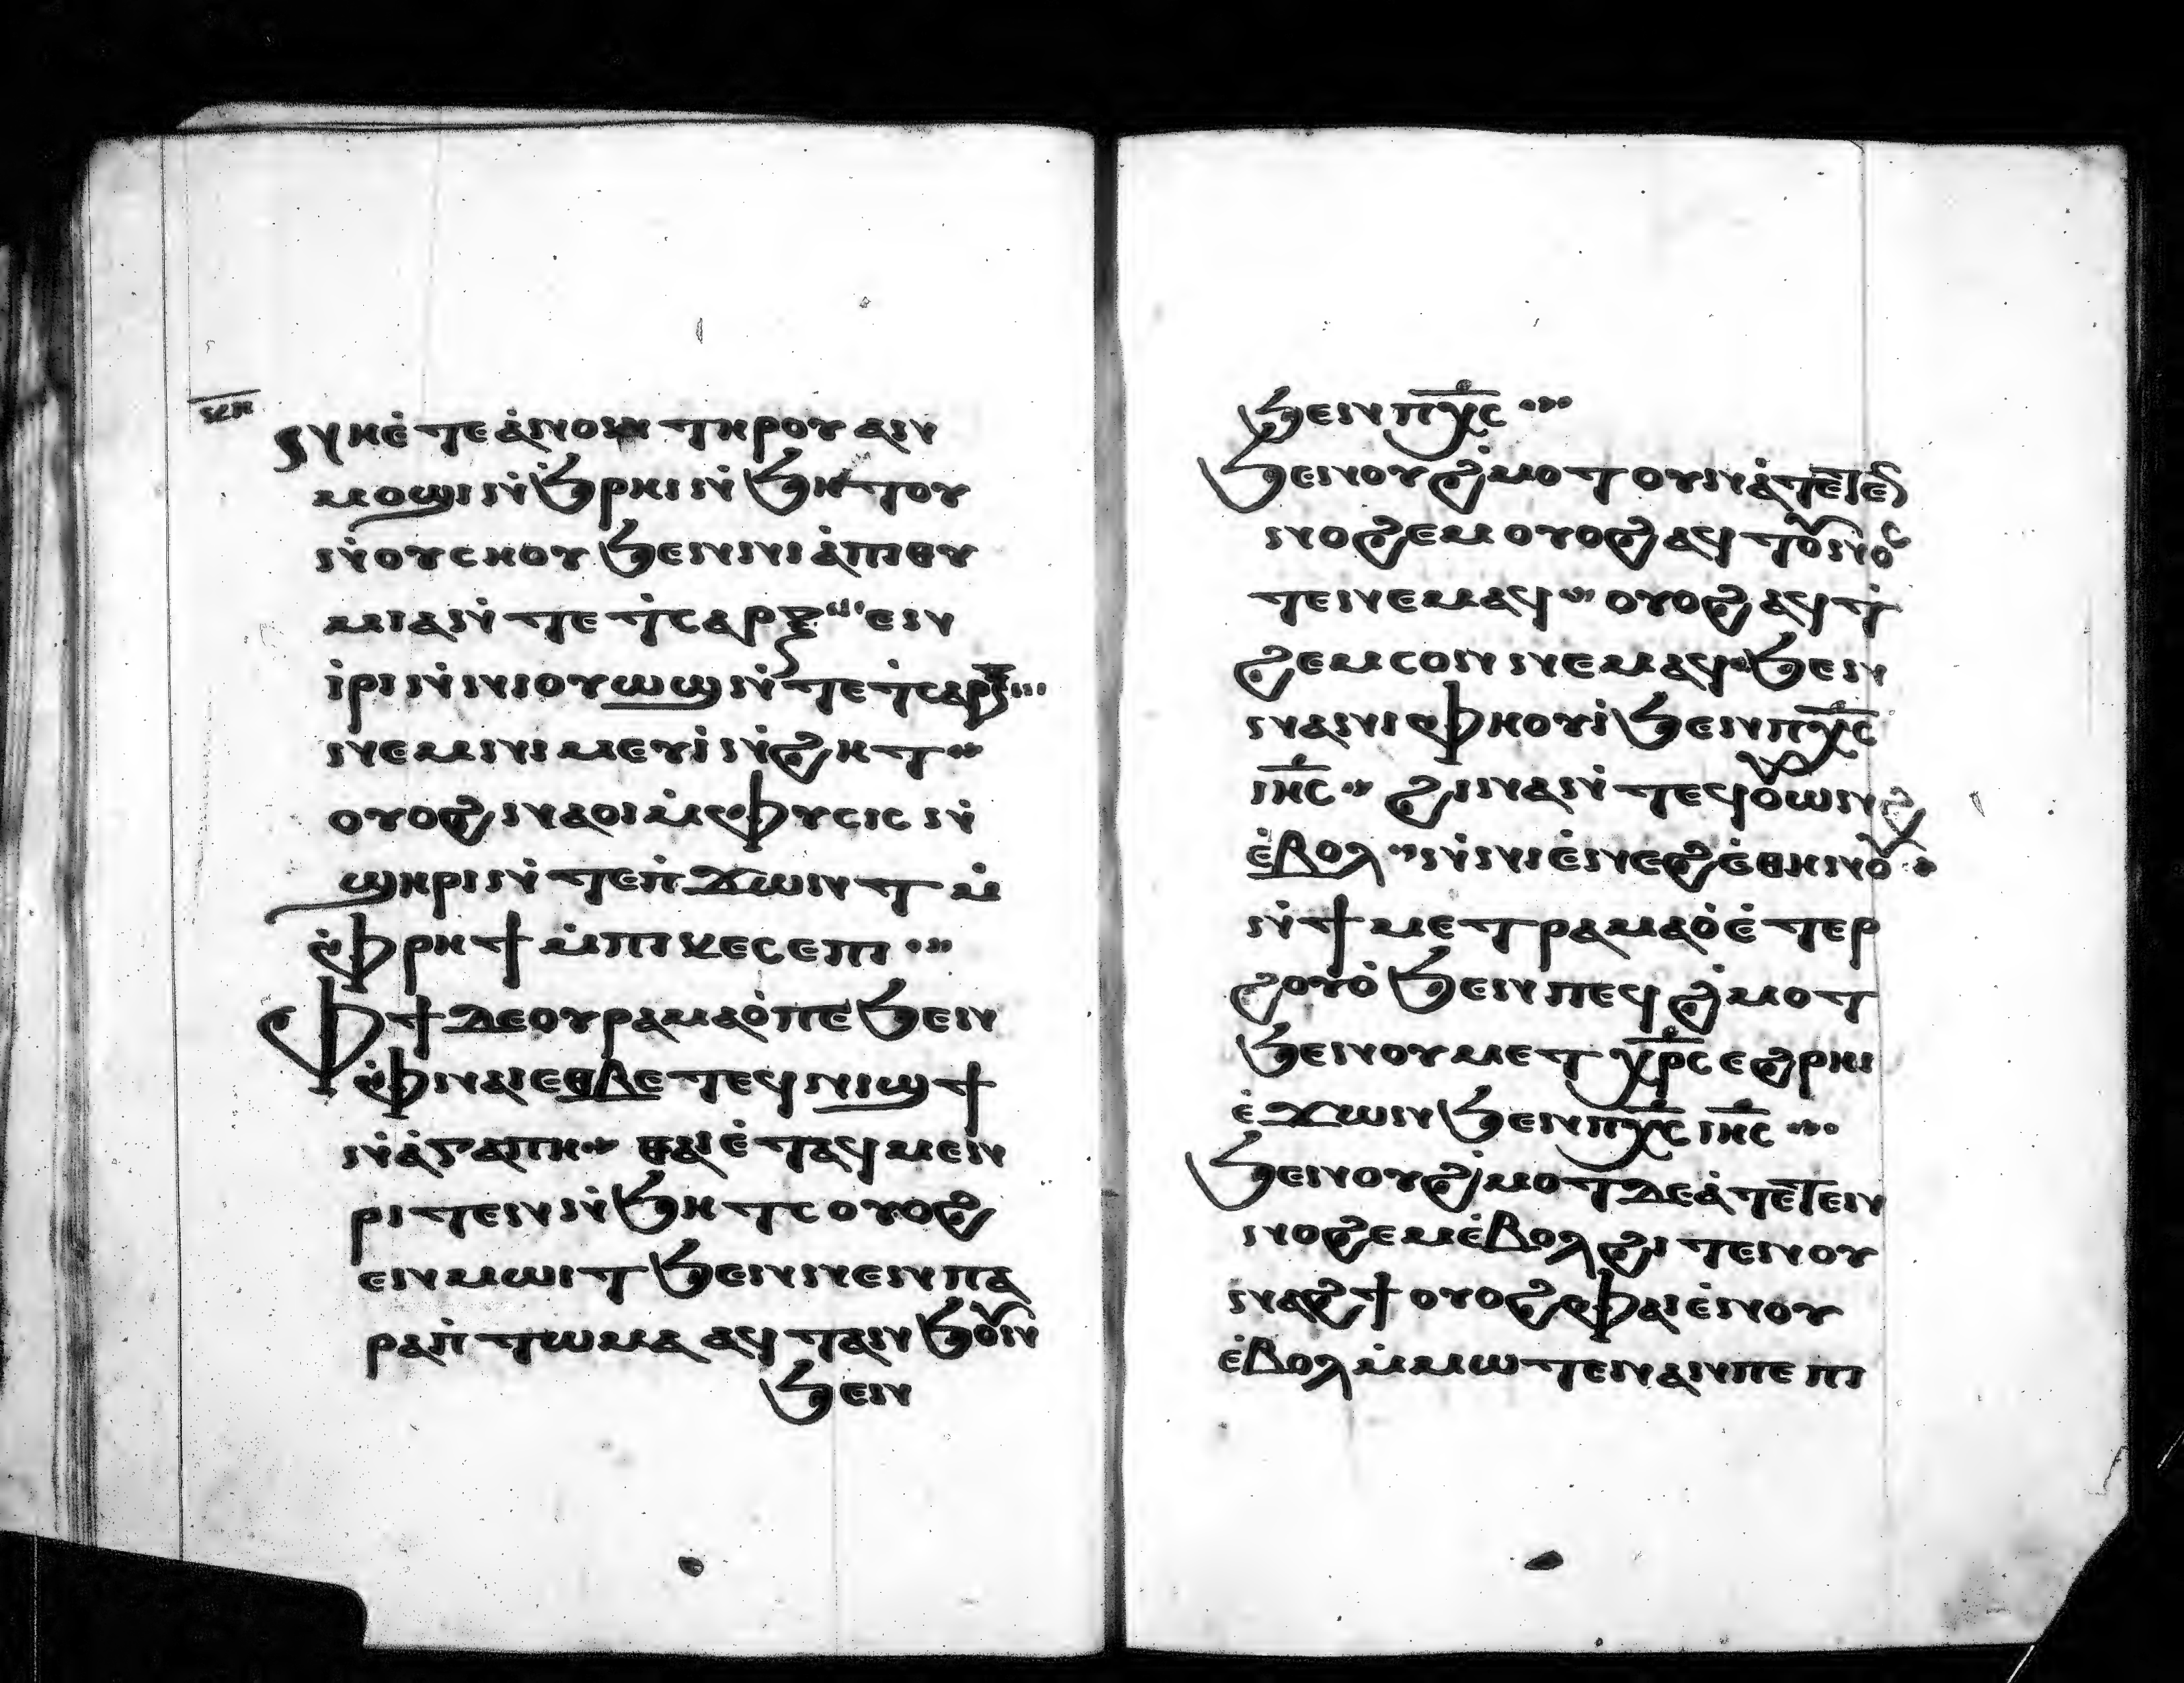 ⲛⲏⲉ̀ⲧⲉ ⲁ̀ⲛⲟⲛ ⲧⲏⲣⲟⲩ ⲁⲛ
ⲙⲟϣⲓ ⲛ̀ϧ̀ⲣⲏⲓ ⲛ̀ϧⲏⲧⲟⲩ
ⲛ̀ⲟⲩⲥⲏⲟⲩ ϧⲉⲛ ⲛⲓⲁ̀ⲡⲓⲑⲩ
ⲙⲓⲁ ⲛ̀ⲧⲉ ⲧ̀ⲥⲁⲣⲝ ⲉⲛ
ⲓ̀ⲣⲓ ⲛ̀ⲛⲓⲟⲩⲱϣ ⲛ̀ⲧⲉ ⲧ̀ⲥⲁⲣⲝ
ⲛⲉⲙ ⲛⲓⲙⲉⲩⲓ̀ ⲛ̀ϩⲏⲧ
ⲟⲩⲟϩ ⲛⲁⲟⲓ ⲙ̀ⲫⲩⲥⲓⲥ ⲛ̀
ϣⲏⲣⲓ ⲛ̀ⲧⲉ ⲡ̀ϫⲱⲛⲧ ⲙ̀
ⲫ̀ⲣⲏϯ ⲙ̀ⲡⲓⲕⲉⲥⲉⲡⲓ
ⲫϯ ⲇⲉ ⲟⲩⲣⲁⲙⲁⲟ̀ ⲡⲉ ϧⲉⲛ
ⲫ̀ⲛⲁⲓ ⲉⲑⲃⲉ ⲧⲉϥⲛⲓϣϯ
ⲛ̀ⲁ̀ⲅⲁⲡⲏ ⲑⲁⲓ ⲉ̀ⲧⲁϥⲙⲉⲛ
ⲣⲓⲧⲉⲛ ⲛ̀ϧⲏⲧⲥ ⲟⲩⲟϩ
ⲉⲛⲙⲱⲓⲧ ϧⲉⲛ ⲛⲉⲛⲡⲁ
ⲣⲁⲡ̀ⲧⲱⲙⲁ ⲁϥⲧⲁⲛϧⲟⲩⲛ
ϧⲉⲛ
ϧⲉⲛ ⲡⲭ̅ⲥ̅
ϧⲉⲛ ⲟⲩϩ̀ⲙⲟⲧ ⲟⲩⲛ ⲁ̀ⲧⲉⲧⲉⲛ
ⲛⲟϩⲉⲙ ⲟⲩⲟϩ ⲁϥⲧⲟⲩⲛⲟⲥ
ⲧⲉⲛ ⲛⲉⲙⲁϥ ⲟⲩⲟϩ ⲁϥⲧ̀
ϩⲉⲙⲥⲟⲛ ⲛⲉⲙⲁϥ ϧⲉⲛ
ⲛⲁ ⲛⲓⲫⲏⲟⲩⲓ̀ ϧⲉⲛ ⲡⲭ̅ⲥ̅
ⲓⲏ̅ⲥ̅ ϩⲓⲛⲁ ⲛ̀ⲧⲉϥⲟⲩⲱⲛϩ
ⲉ̀ⲃⲟⲗ ⲛ̀ⲛⲓⲉ̀ⲛⲉϩ ⲉ̀ⲑⲛⲏⲟⲩ
ⲛ̀ϯⲙⲉⲧⲣⲁⲙⲁⲟ̀ ⲉ̀ⲧⲉⲣ
ϩⲟⲩⲟ̀ ϧⲉⲛ ⲡⲉϥϩ̀ⲙⲟⲧ
ϧⲉⲛ ⲟⲩⲙⲉⲧⲭ̅ⲣ̅ⲥ̅ ⲉϩⲣⲏⲓ
ⲉ̀ϫⲱⲛ ϧⲉⲛ ⲡⲭ̅ⲥ̅ ⲓⲏ̅ⲥ̅
ϧⲉⲛ ⲟⲩϩ̀ⲙⲟⲧ ⲇⲉ ⲁ̀ⲧⲉⲧⲉⲛ
ⲛⲟϩⲉⲙ ⲉ̀ⲃⲟⲗ ϩⲓⲧⲉⲛ ⲟⲩ
ⲛⲁϩϯ ⲟⲩⲟϩ ⲫⲁⲓ ⲉ̀ⲛⲟⲩ
ⲉ̀ⲃⲟⲗ ⲙ̀ⲙⲱⲧⲉⲛ ⲁⲛ ⲡⲉ ⲡⲓ